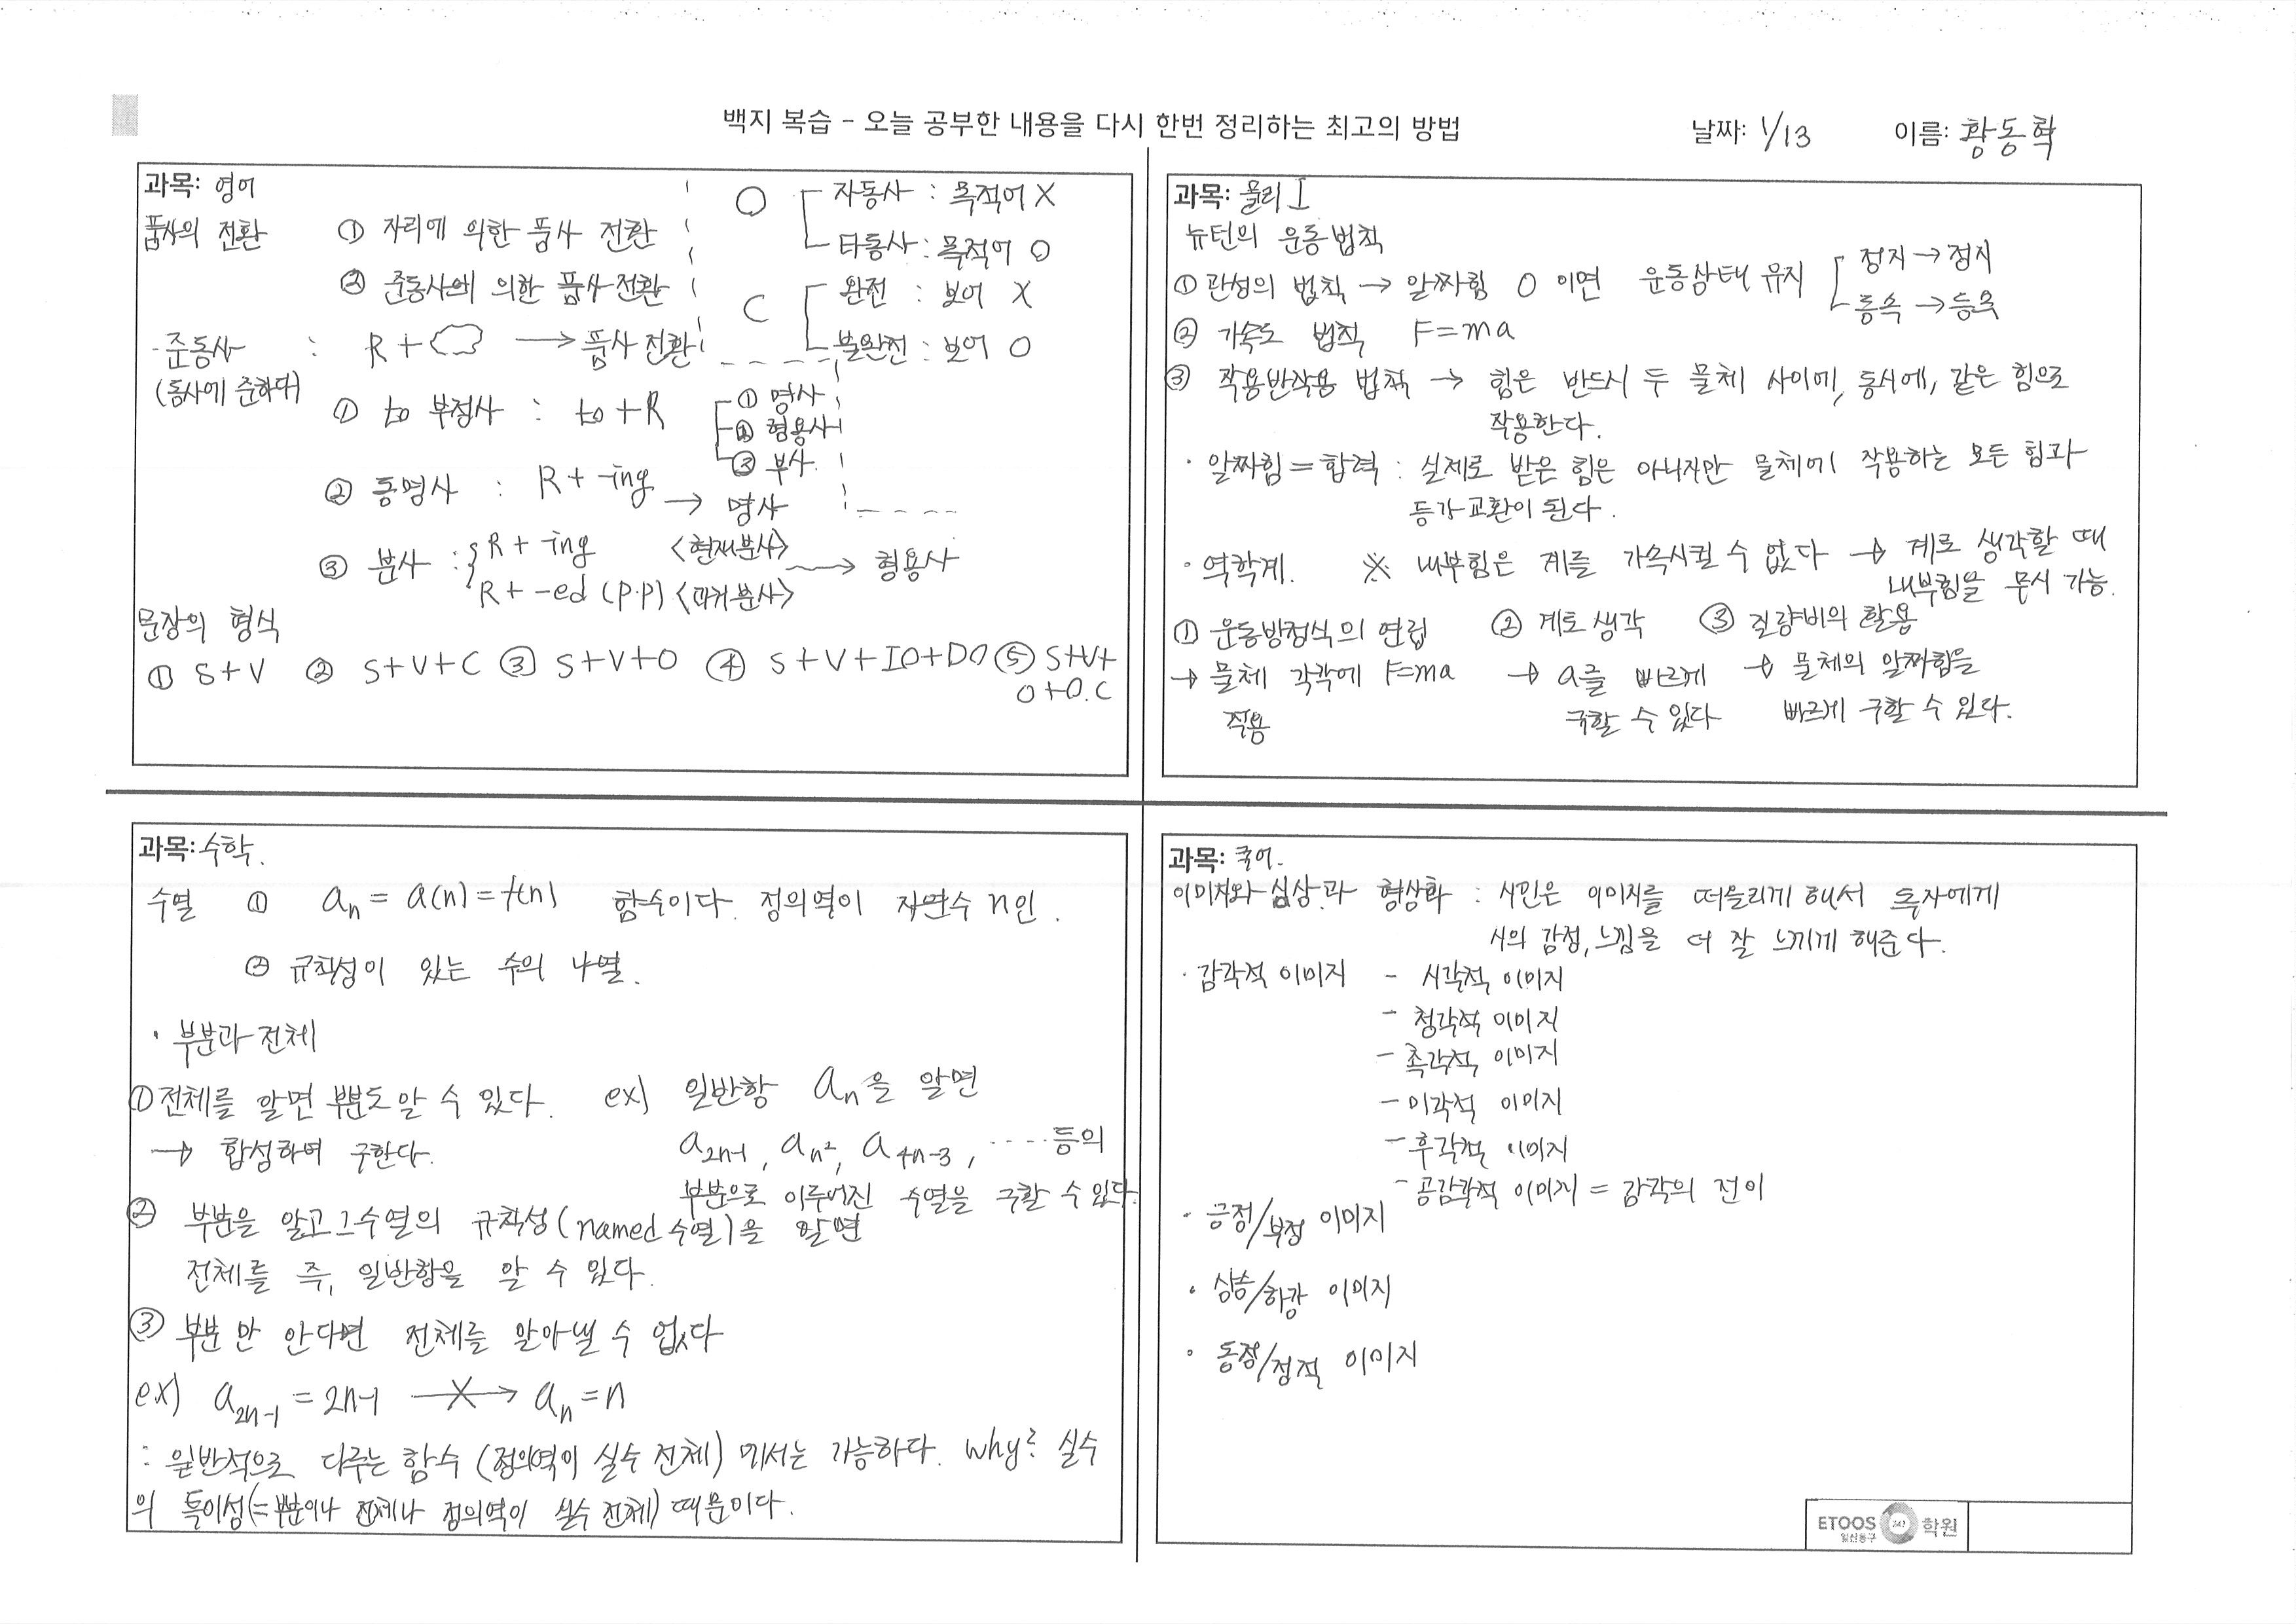 백지 복습 - 오늘 공부한 내용을 다시 한번 정리하는 최고의 방법
날짜: 1/13
이름: 황동혁
과목: 영어
품사의 전환 ① 자리에 의한 품사 전환
② 준동사에 의한 품사 전환
O 자동사 : 목적어 X
타동사 : 목적어 O
C 완전 : 보어 X
불완전 : 보어 O
- 준동사 : R + → 품사 전환
(동사에 준하다)
① to 부정사 : to + R
① 명사
② 형용사
③ 부사
② 동명사 : R + -ing → 명사
③ 분사 : R + -ing <현재분사> → 형용사
R + -ed (P.P) <과거분사>
문장의 형식
① S+V ② S+V+C ③ S+V+O ④ S+V+IO+DO ⑤ S+V+
O+O.C
과목: 물리 I
뉴턴의 운동법칙
① 관성의 법칙 → 알짜힘 0 이면 운동상태 유지
정지 → 정지
등속 → 등속
② 가속도 법칙 F=ma
③ 작용반작용 법칙 → 힘은 반드시 두 물체 사이에, 동시에, 같은 힘으로
작용한다.
· 알짜힘 = 합력 : 실제로 받은 힘은 아니지만 물체에 작용하는 모든 힘과
등가교환이 된다.
· 역학계. ※ 내부힘은 계를 가속시킬 수 없다 → 계로 생각할 때
내부힘을 무시 가능.
① 운동방정식의 연립 ② 계로 생각 ③ 질량비의 활용
→ 물체 각각에 F=ma → a를 빠르게 → 물체의 알짜힘을
적용 구할 수 있다 빠르게 구할 수 있다.
과목: 수학.
수열 ① aₙ = a(n) = f(n) 함수이다. 정의역이 자연수 n인.
② 규칙성이 있는 수의 나열.
· 부분과 전체
① 전체를 알면 부분도 알 수 있다. ex) 일반항 aₙ을 알면
→ 합성하여 구한다. a₂ₙ₋₁, aₙ², a₄ₙ₋₃, ····등의
부분으로 이루어진 수열을 구할 수 있다.
② 부분을 알고 그 수열의 규칙성(named 수열)을 알면
전체를 즉, 일반항을 알 수 있다.
③ 부분 만 안다면 전체를 알아낼 수 없다
ex) a₂ₙ₋₁ = 2n-1 —X→ aₙ = n
: 일반적으로 다루는 함수 (정의역이 실수 전체) 에서는 가능하다. why? 실수
의 특이성(=부분이나 전체나 정의역이 실수 전체) 때문이다.
과목: 국어.
이미지와 심상과 형상화 : 시인은 이미지를 떠올리게 해서 독자에게
시의 감정, 느낌을 더 잘 느끼게 해준다.
· 감각적 이미지 - 시각적 이미지
- 청각적 이미지
- 촉각적 이미지
- 미각적 이미지
- 후각적 이미지
- 공감각적 이미지 = 감각의 전이
· 긍정/부정 이미지
· 상승/하강 이미지
· 동적/정적 이미지
ETOOS 247 학원
일산동구